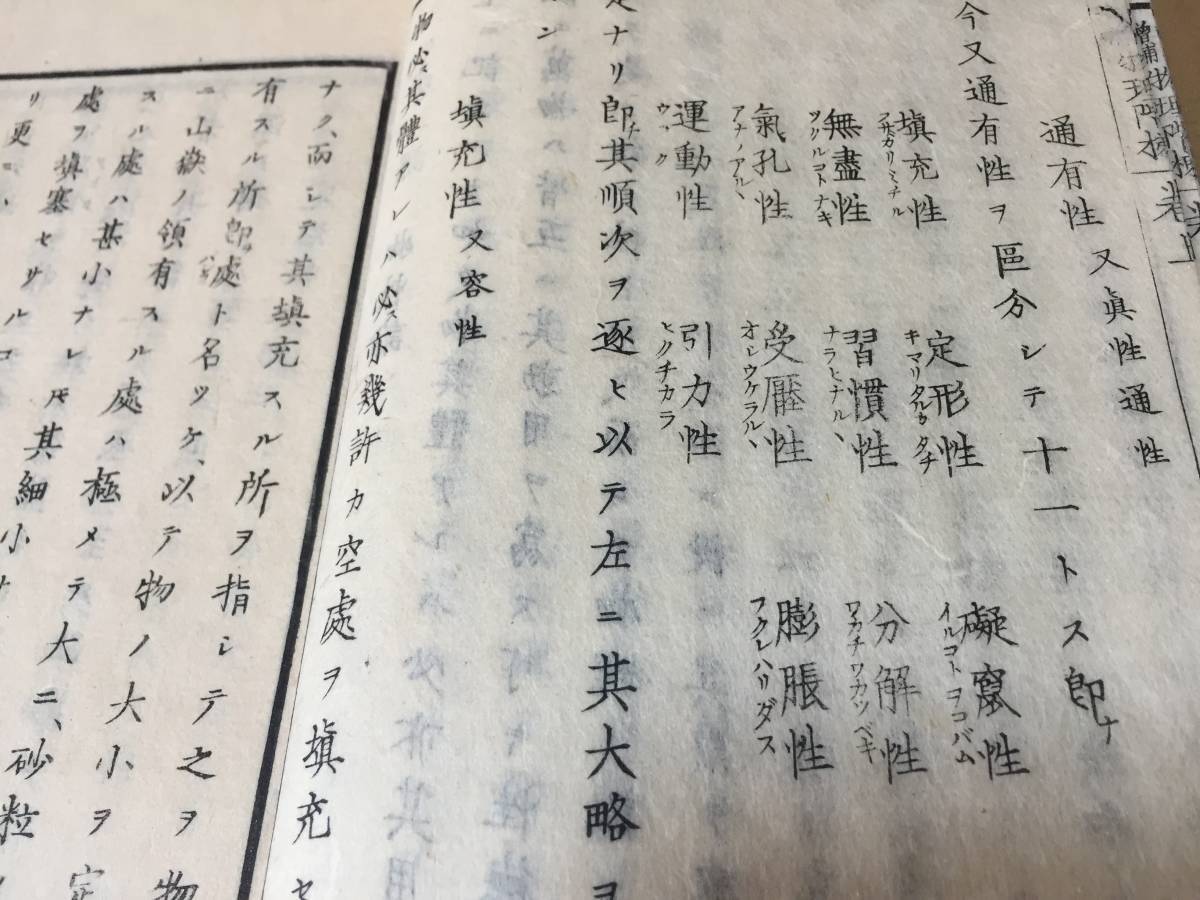 通有性 又眞性通性
今又通有性ヲ區分シテ十一トス即ナ
填充性 定形性 礙竄性
フサガリミチル キマリタルカタチ イルコトヲコバム
無盡性 習慣性 分解性
ツクルコトナキ ナラヒナル、 ワカチワカツベキ
氣孔性 受壓性 膨脹性
アナノアル、 オシウケラル、 フクレハリダス
運動性 引力性
ウゴク ヒクチカラ
定ナリ即ナ其順次ヲ逐ヒ以テ左ニ其大略ヲ
ン
填充性 又容性
物必ス其體アレハ必ス亦幾許カ空處ヲ填充セ
ナク、而シテ其填充スル所ヲ指シテ之ヲ物
有スル所即ナ處ト名ツケ、以テ物ノ大小ヲ定
ニ山嶽ノ領有スル處ハ極メテ大ニ、砂粒
スル處ハ甚小ナレ𪜈其細小ナ
處ヲ填塞セサルコ
リ更ニ